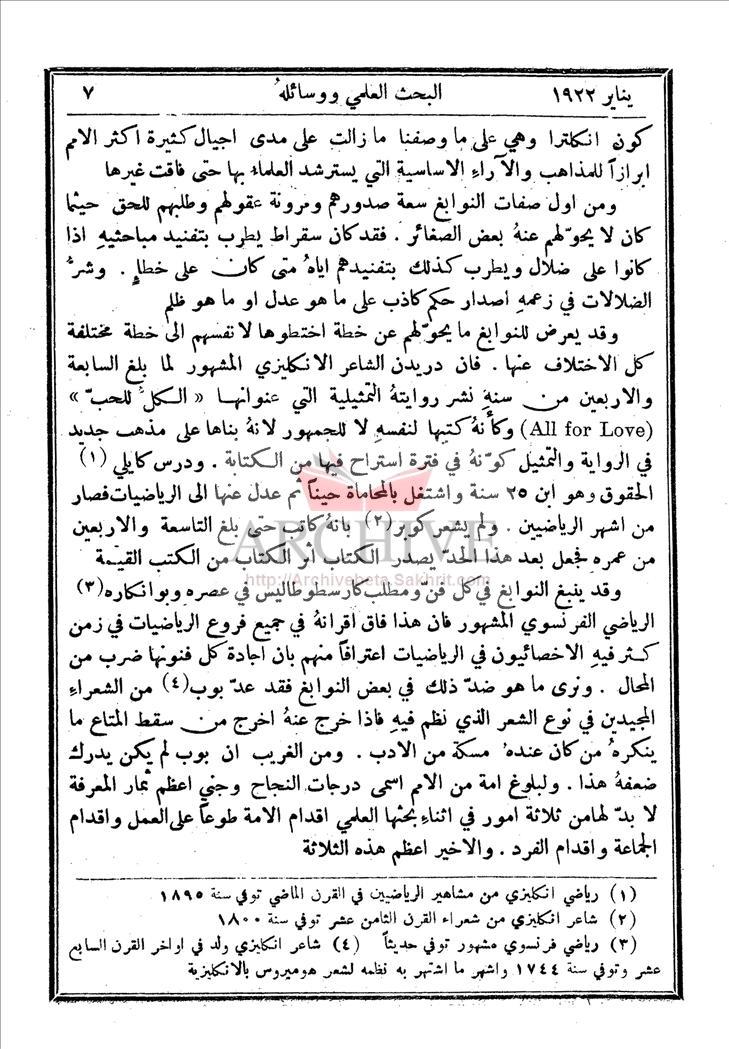 يناير ١٩٢٢ البحث العلمي ووسائلهُ ٧
كون انكلترا وهي على ما وصفنا ما زالت على مدى اجيال كثيرة اكثر الامم
ابرازاً للمذاهب والآراء الاساسية التي يسترشد العلماء بها حتى فاقت غيرها
ومن اول صفات النوابغ سعة صدورهم ومرونة عقولهم وطلبهم للحق حيثما
كان لا يحوّلهم عنهُ بعض الصغائر . فقد كان سقراط يطرب بتفنيد مباحثيهِ اذا
كانوا على ضلال ويطرب كذلك بتفنيدهم اياهُ متى كان على خطإٍ . وشرُّ
الضلالات في زعمهِ اصدار حكم كاذب على ما هو عدل او ما هو ظلم
وقد يعرض للنوابغ ما يحوّلهم عن خطة اختطوها لانفسهم الى خطة مختلفة
كل الاختلاف عنها . فان دريدن الشاعر الانكليزي المشهور لما بلغ السابعة
والاربعين من سنهِ نشر روايتهُ التمثيلية التي عنوانها « الكلُّ للحبّ »
(All for Love) وكأنهُ كتبها لنفسهِ لا للجمهور لانهُ بناها على مذهب جديد
في الرواية والتمثيل كوّنهُ في فترة استراح فيها من الكتابة . ودرس كايلي (١)
الحقوق وهو ابن ٢٥ سنة واشتغل بالمحاماة حيناً ثم عدل عنها الى الرياضيات فصار
من اشهر الرياضيين . ولم يشعر كوبر(٢) بانهُ كاتب حتى بلغ التاسعة والاربعين
من عمره فجعل بعد هذا الحدّ يصدر الكتاب اثر الكتاب من الكتب القيمة
وقد ينبغ النوابغ في كل فن ومطلب كارسطوطاليس في عصره وبوانكاره(٣)
الرياضي الفرنسوي المشهور فان هذا فاق اقرانهُ في جميع فروع الرياضيات في زمن
كثر فيهِ الاخصائيون في الرياضيات اعترافاً منهم بان اجادة كل فنونها ضرب من
المحال . ونرى ما هو ضدّ ذلك في بعض النوابغ فقد عدّ بوب(٤) من الشعراء
المجيدين في نوع الشعر الذي نظم فيهِ فاذا خرج عنهُ اخرج من سقط المتاع ما
ينكرهُ من كان عندهُ مسكة من الادب . ومن الغريب ان بوب لم يكن يدرك
ضعفهُ هذا . ولبلوغ امة من الامم اسمى درجات النجاح وجني اعظم ثمار المعرفة
لا بدّ لها من ثلاثة امور في اثناء بحثها العلمي اقدام الامة طوعاً على العمل واقدام
الجماعة واقدام الفرد . والاخير اعظم هذه الثلاثة
(١) رياضي انكليزي من مشاهير الرياضيين في القرن الماضي توفي سنة ١٨٩٥
(٢) شاعر انكليزي من شعراء القرن الثامن عشر توفي سنة ١٨٠٠
(٣) رياضي فرنسوي مشهور توفي حديثاً (٤) شاعر انكليزي ولد في اواخر القرن السابع
عشر وتوفي سنة ١٧٤٤ واشهر ما اشتهر به نظمه لشعر هوميروس بالانكليزية
ARCHIVE
http://Archivebeta.Sakhrit.com